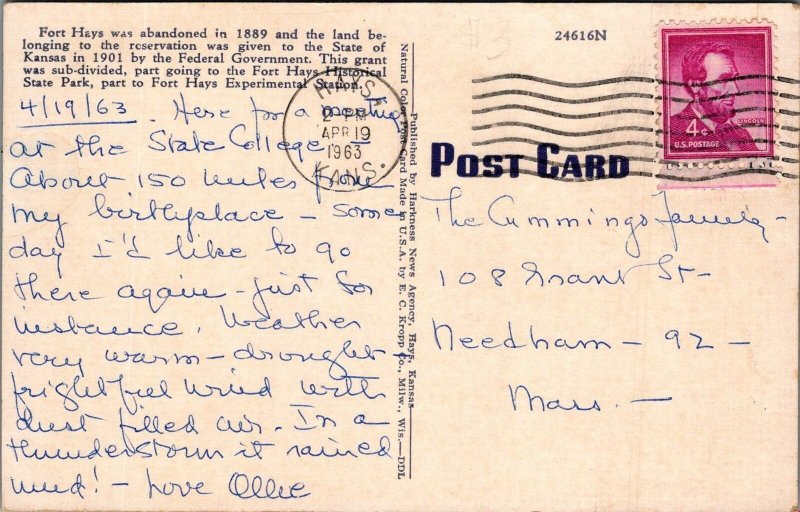 Fort Hays was abandoned in 1889 and the land be-
longing to the reservation was given to the State of
Kansas in 1901 by the Federal Government. This grant
was sub-divided, part going to the Fort Hays Historical
State Park, part to Fort Hays Experimental Station.
4/19/63. Here for a meeting
at the State College
About 150 miles from
my birthplace - some
day I'd like to go
there again - just for
instance. Weather
very warm - drought
frightful wind with
dust filled air. In a
thunderstorm it rained
mud! - Love Ollie
HAYS,
2 PM
APR 19
1963
KANS.
Published by Harkness News Agency, Hays, Kansas
Natural Color Post Card Made in U.S.A. by E. C. Kropp Co., Milw., Wis.—DDL
24616N
4¢
LINCOLN
U.S. POSTAGE
POST CARD
The Cummings Family -
108 Grant St -
Needham - 92 -
Mass. -